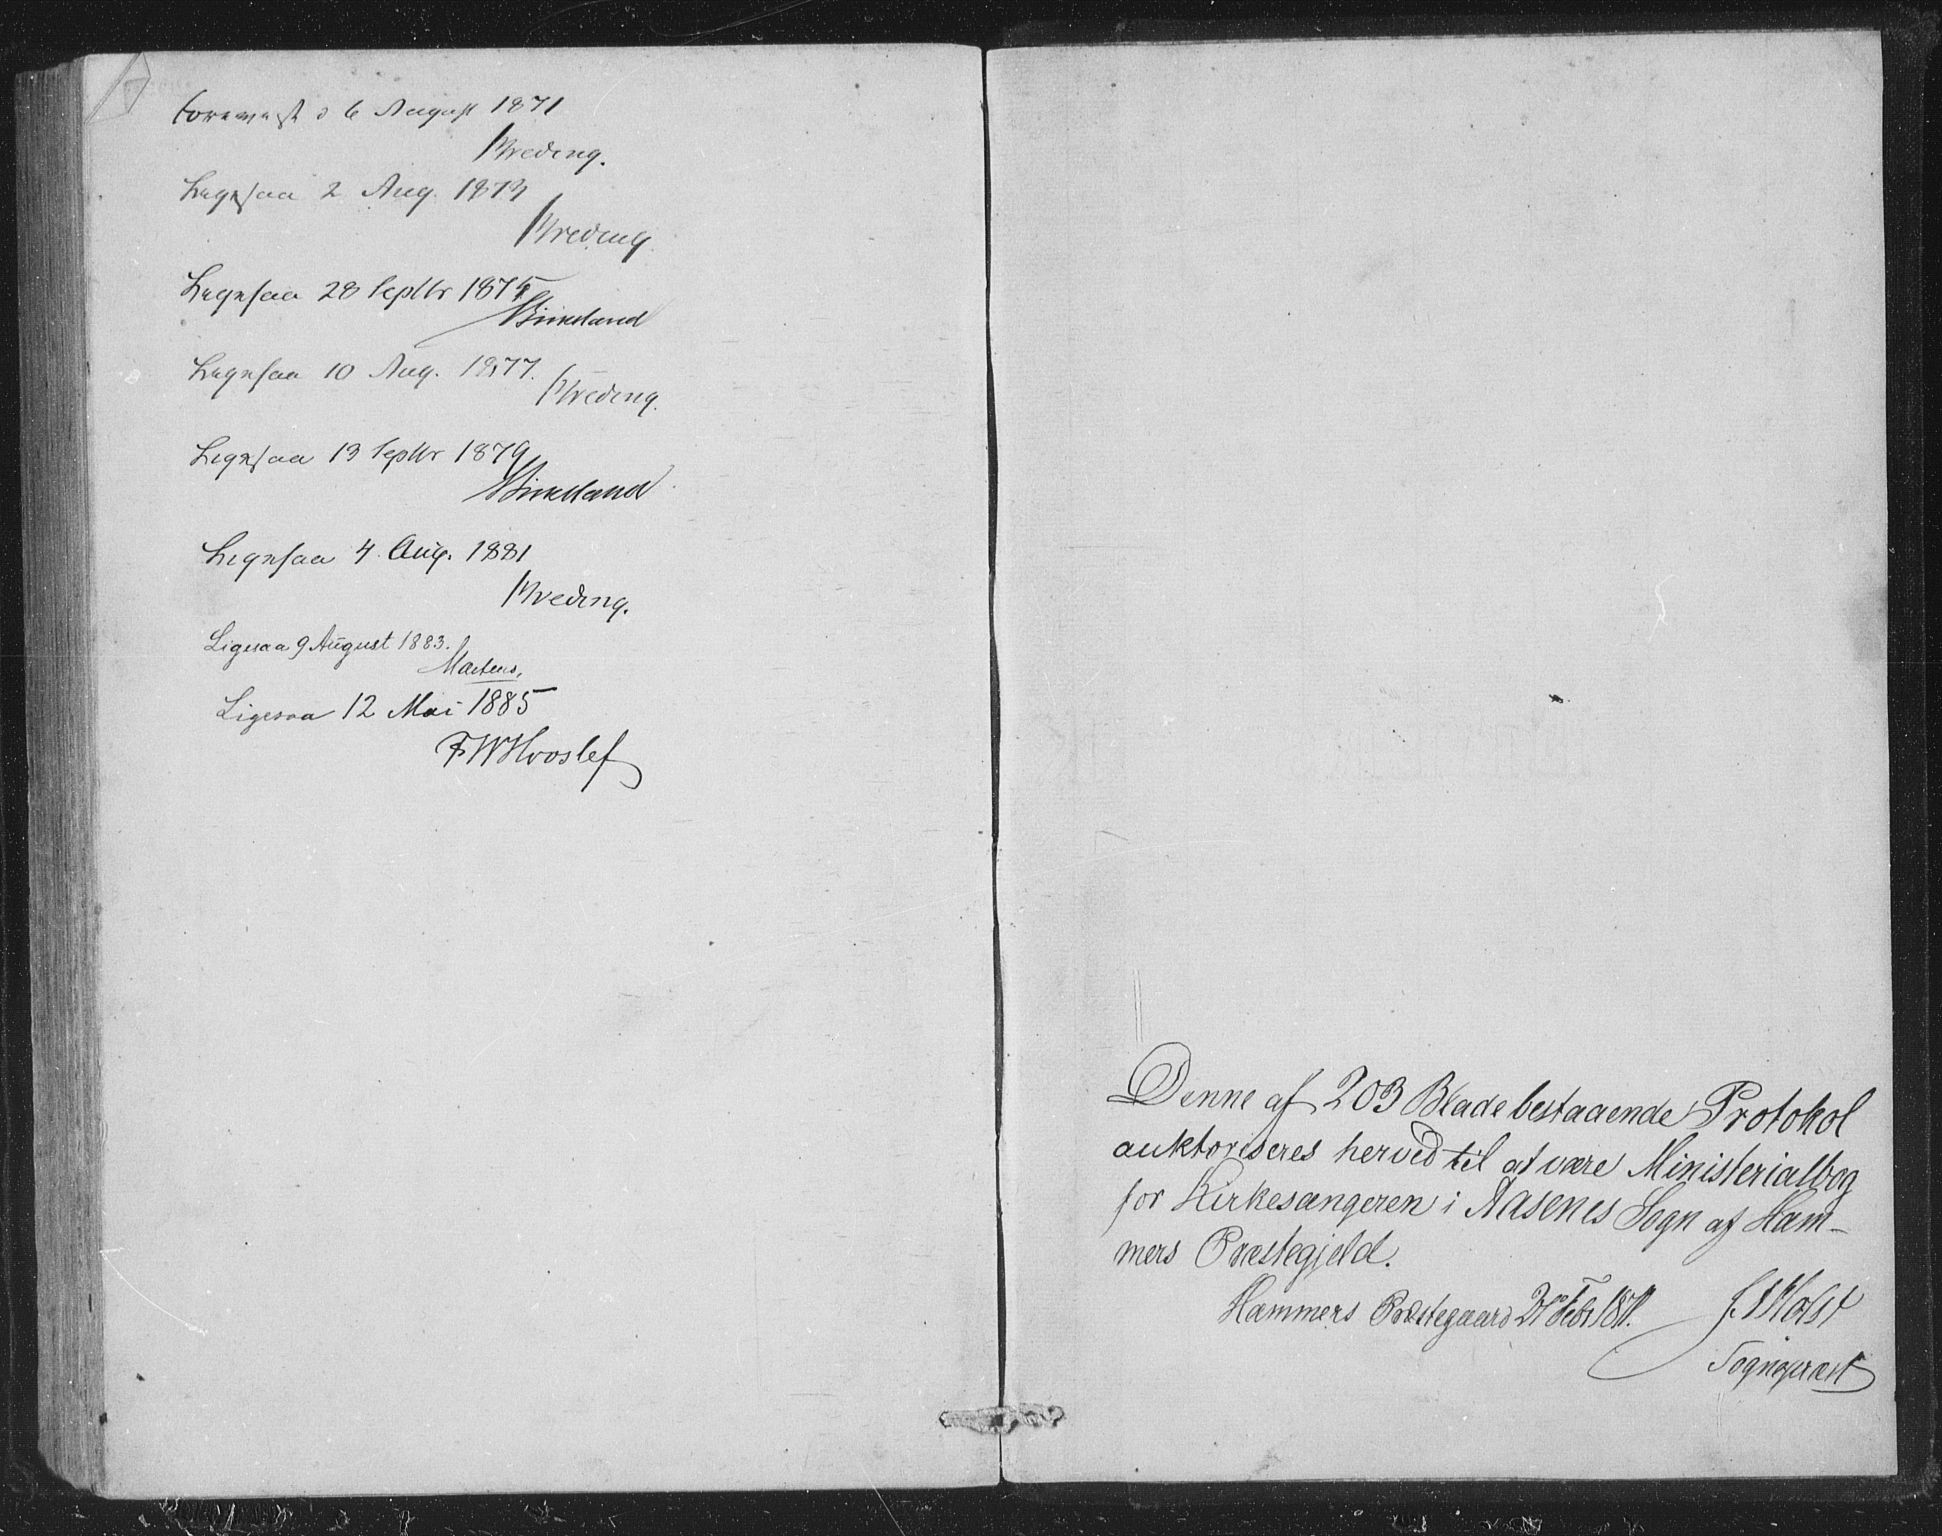 Forevist d 6 August 1871
Breding.
Ligesaa 2 Aug. 1873
Breding
Ligesaa 28 Septbr 1875
Birkeland
Ligesaa 10 Aug. 1877.
Breding.
Ligesaa 13 Septbr 1879
Birkeland
Ligesaa 4 Aug. 1881
Breding.
Ligesaa 9 August 1883.
Martens.
Ligesaa 12 Mai 1885
F W Hvoslef
Denne af 203 Blade bestaaende Protokol
auktoriseres herved til at være Ministerialbog
for Kirkesangeren i Aasenes Sogn af Ham-
mers Præstegjeld.
Hammers Præstegaard Febr 1871.
Holst
Sognepræst